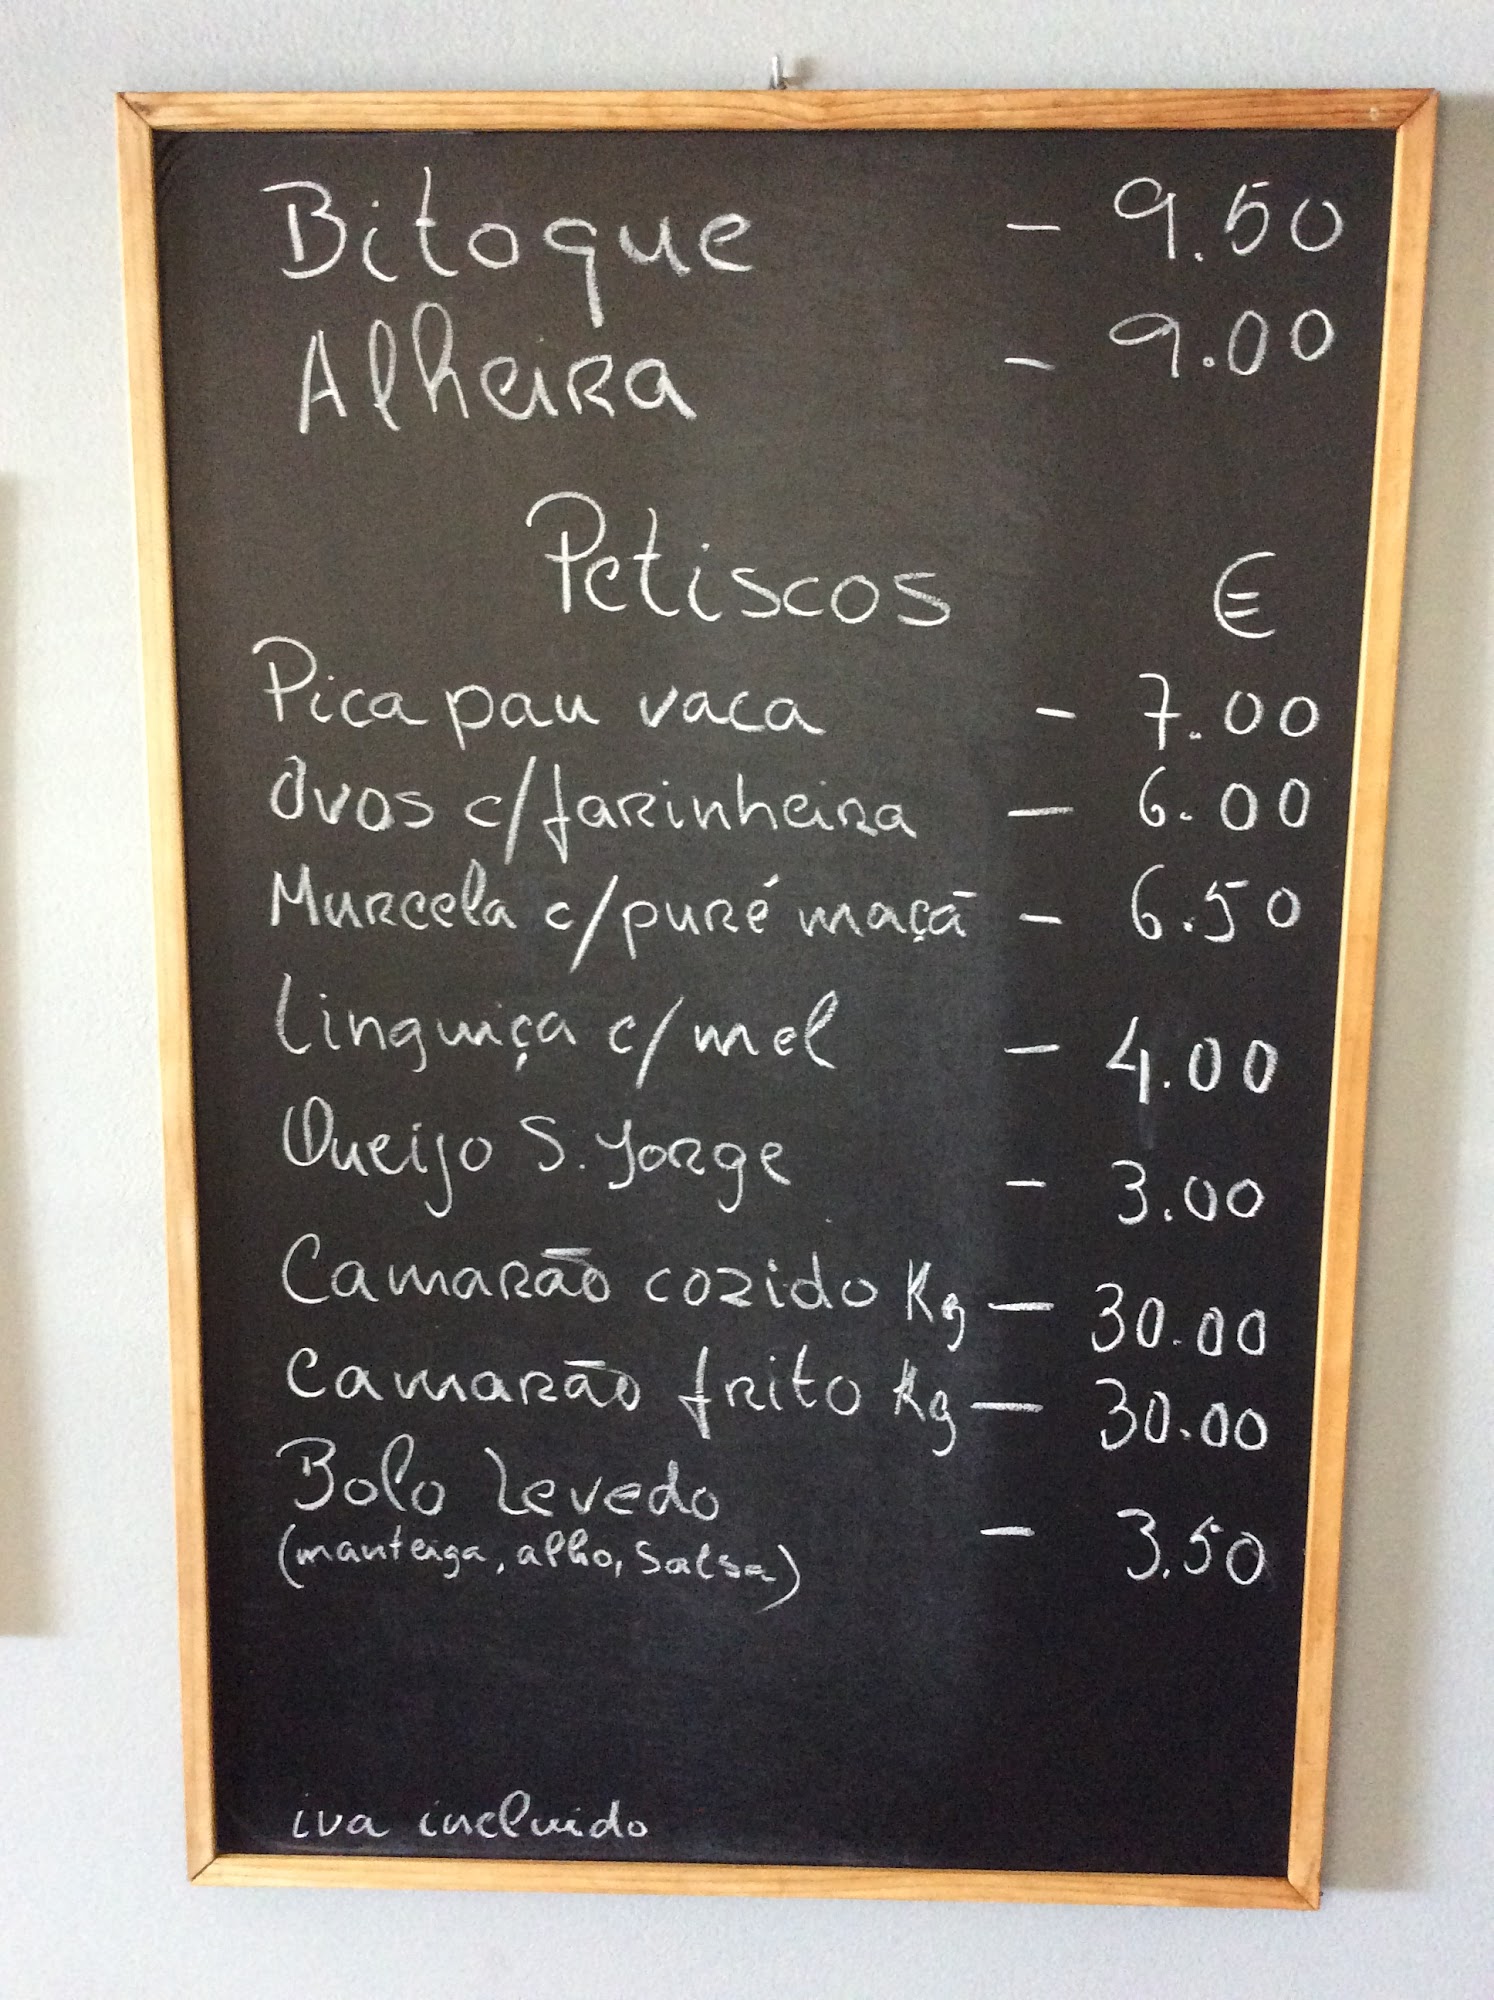 Bitoque - 9.50
Alheira - 9.00
Petiscos €
Pica pau vaca - 7.00
Ovos c/farinheira - 6.00
Murcela c/puré maçã - 6.50
Linguiça c/mel - 4.00
Queijo S. Jorge - 3.00
Camarão cozido Kg - 30.00
Camarão frito Kg - 30.00
Bolo Levedo
(manteiga, alho, Salsa) - 3.50
iva incluido